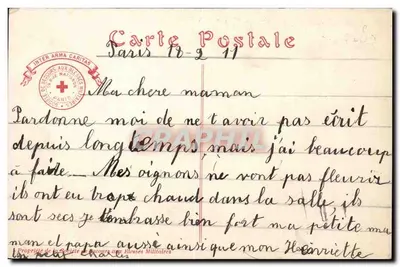 Carte Postale
INTER ARMA CARITAS
Paris 18-2 11
Ma chere maman
Pardonne moi de ne t'avoir pas écrit
depuis longtemps, mais j'ai beaucoup
à faire - Mes oignons ne vont pas fleurir
ils ont eu trop chaud dans la salle ils
sont secs je t'embrasse bien fort ma petite ma
man et papa aussi ainsi que mon Henriette
Militaires
ton petit Charles